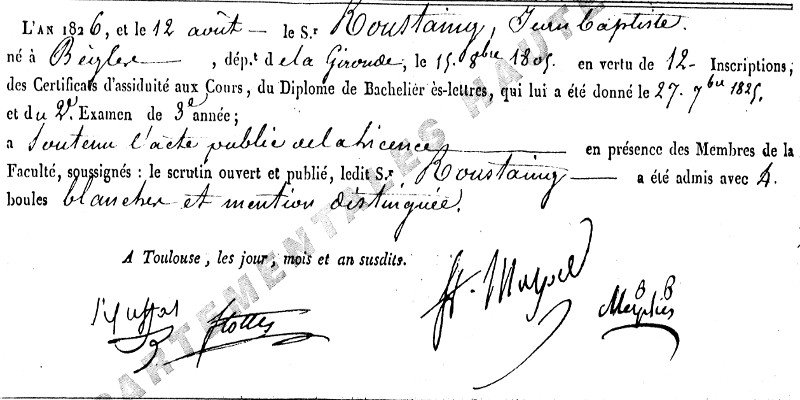 L'AN 1826, et le 12 août — le S.r Roustaing, Jean Baptiste.
né à Bègles — , dép.t de la Gironde, le 15. 8bre 1805. en vertu de 12 - Inscriptions,
des Certificats d'assiduité aux Cours, du Diplome de Bachelier ès-lettres, qui lui a été donné le 27. 7bre 1825,
et du 2d. Examen de 3e année;
a soutenu l'acte public de la Licence — en présence des Membres de la
Faculté, soussignés : le scrutin ouvert et publié, ledit S.r Roustaing — a été admis avec 4.
boules blanches et mention distinguée.
A Toulouse, les jour, mois et an susdits.
flottes
PARTEMENTALES HAUTE